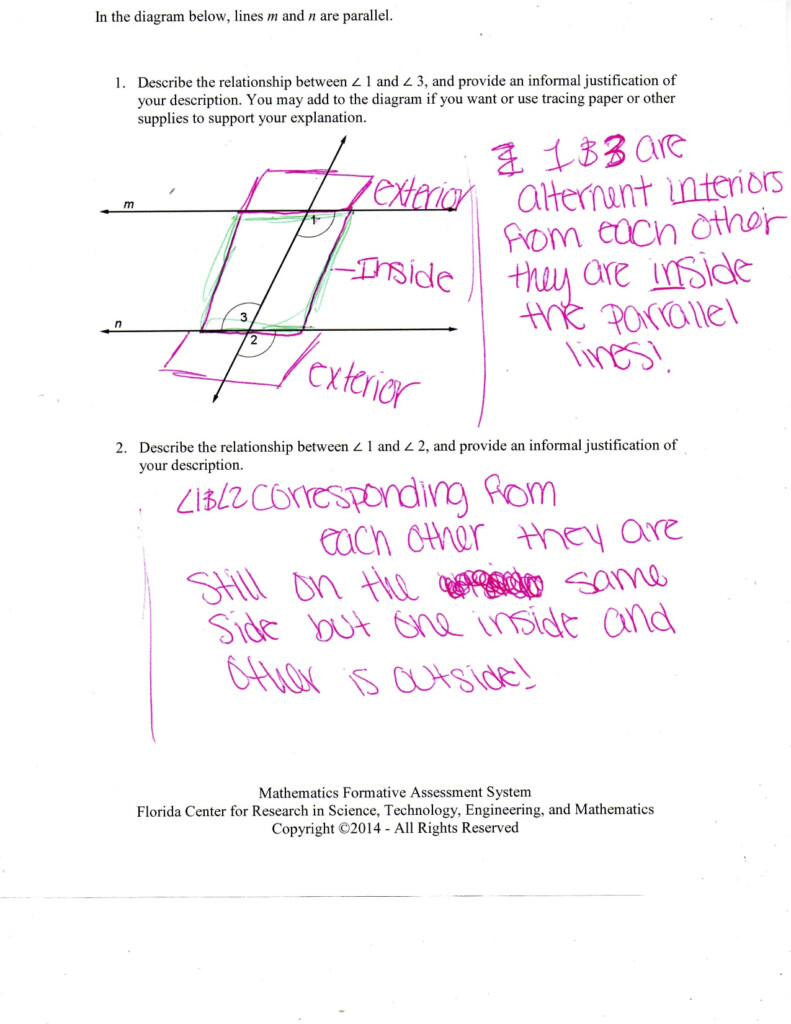 In the diagram below, lines m and n are parallel.
1. Describe the relationship between ∠ 1 and ∠ 3, and provide an informal justification of
your description. You may add to the diagram if you want or use tracing paper or other
supplies to support your explanation.
∠ 1 & 3 are
alternent interiors
from each other
they are inside
the parrallel
lines!
exterior
m
1
Inside
3
n
2
exterior
2. Describe the relationship between ∠ 1 and ∠ 2, and provide an informal justification of
your description.
∠1&∠2 corresponding from
each other they are
Still on the same
side but one inside and
other is outside!
Mathematics Formative Assessment System
Florida Center for Research in Science, Technology, Engineering, and Mathematics
Copyright ©2014 - All Rights Reserved